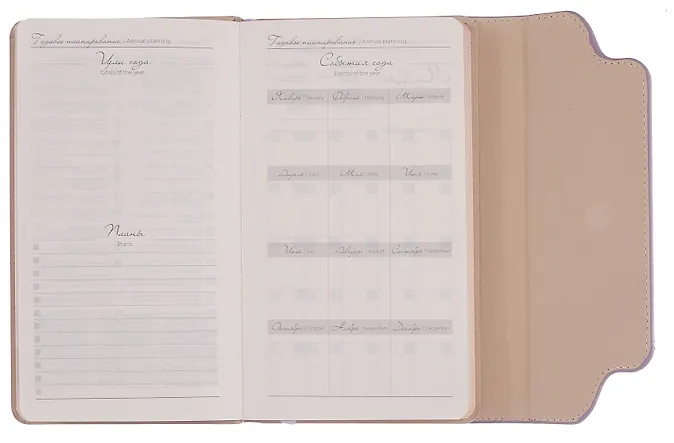 Годовое планирование / Annual planning
Цели года
Goals of the year
Планы
Plans
Годовое планирование / Annual planning
События года
Events of the year
Январь / January Февраль / February Март / March
Апрель / April Май / May Июнь / June
Июль / July Август / August Сентябрь / September
Октябрь / October Ноябрь / November Декабрь / December